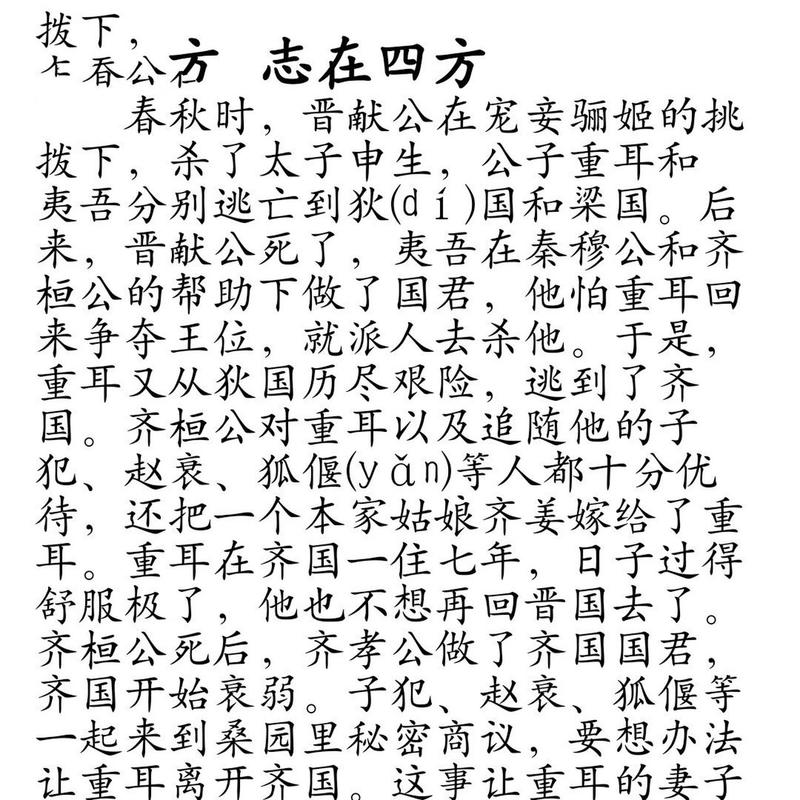 拨下，
春公
方 志在四方
春秋时，晋献公在宠妾骊姬的挑
拨下，杀了太子申生，公子重耳和
夷吾分别逃亡到狄(dí)国和梁国。后
来，晋献公死了，夷吾在秦穆公和齐
桓公的帮助下做了国君，他怕重耳回
来争夺王位，就派人去杀他。于是，
重耳又从狄国历尽艰险，逃到了齐
国。齐桓公对重耳以及追随他的子
犯、赵衰、狐偃(yǎn)等人都十分优
待，还把一个本家姑娘齐姜嫁给了重
耳。重耳在齐国一住七年，日子过得
舒服极了，他也不想再回晋国去了。
齐桓公死后，齐孝公做了齐国国君，
齐国开始衰弱。子犯、赵衰、狐偃等
一起来到桑园里秘密商议，要想办法
让重耳离开齐国。这事让重耳的妻子